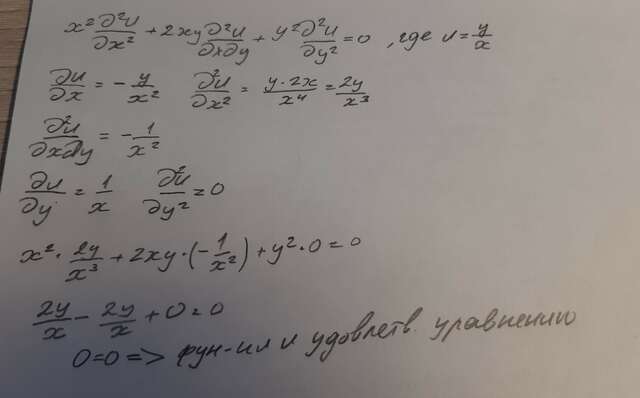 x² ∂²u/∂x² + 2xy ∂²u/∂x∂y + y² ∂²u/∂y² = 0 , где u = y/x
∂u/∂x = - y/x² ∂²u/∂x² = y·2x/x⁴ = 2y/x³
∂²u/∂x∂y = - 1/x²
∂u/∂y = 1/x ∂²u/∂y² = 0
x² · 2y/x³ + 2xy · (- 1/x²) + y² · 0 = 0
2y/x - 2y/x + 0 = 0
0=0 => фун-ия u удовлетв. уравнению